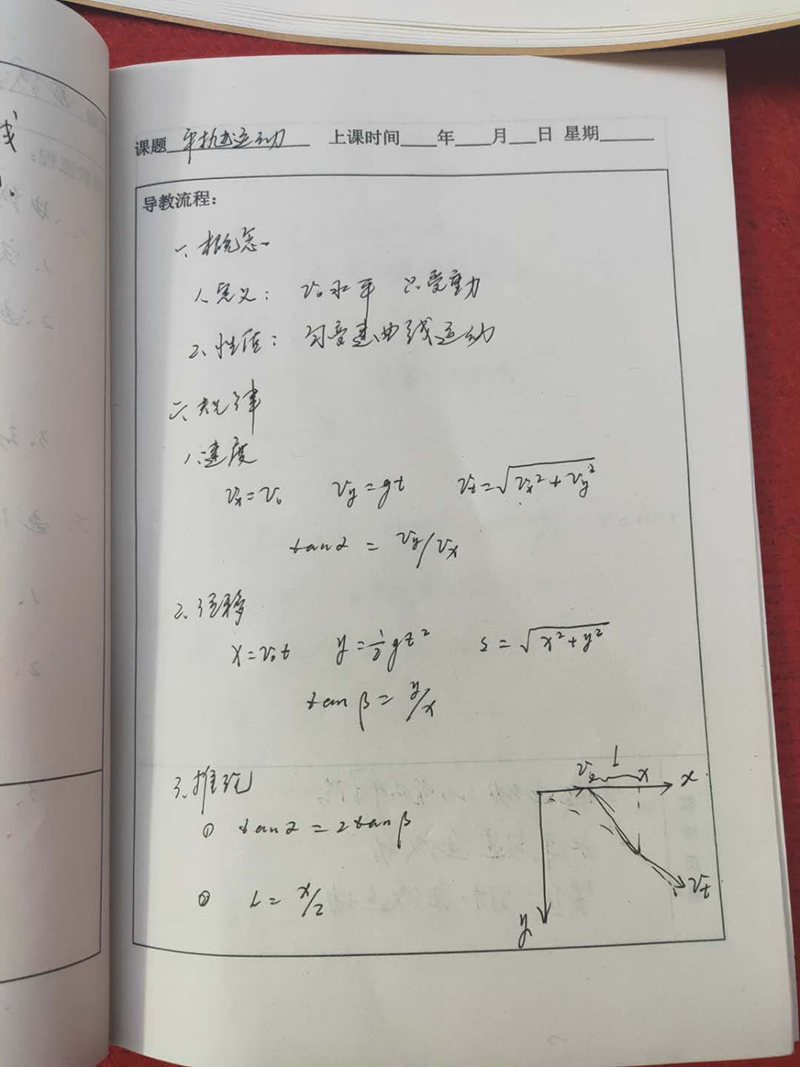 课题 平抛运动 上课时间 年 月 日 星期
导教流程：
一、概念
1、定义： v₀水平 只受重力
2、性质： 匀变速曲线运动
二、规律
1、速度
vₓ=v₀ v_y=gt v_t=√(vₓ²+v_y²)
tanα = v_y/vₓ
2、位移
x=v₀t y=½gt² s=√(x²+y²)
tanβ=y/x
3、推论
① tanα=2tanβ
② L=x/2
v₀ L x x
v_t
y